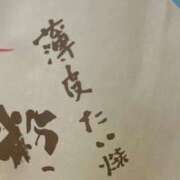 薄皮たい焼